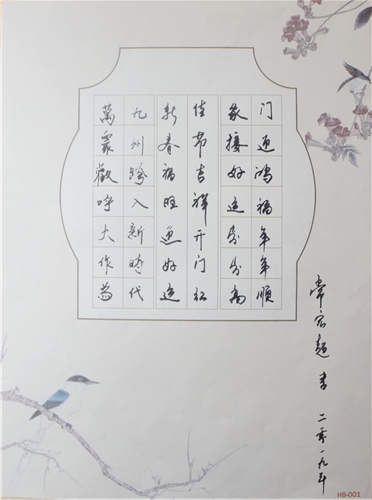 门迎鸿福年年顺
家接好运步步高
佳节吉祥开门红
新春福旺迎好运
九州跨入新时代
萬眾歡呼大作為
常宏超 书 二零一九年
HB-001